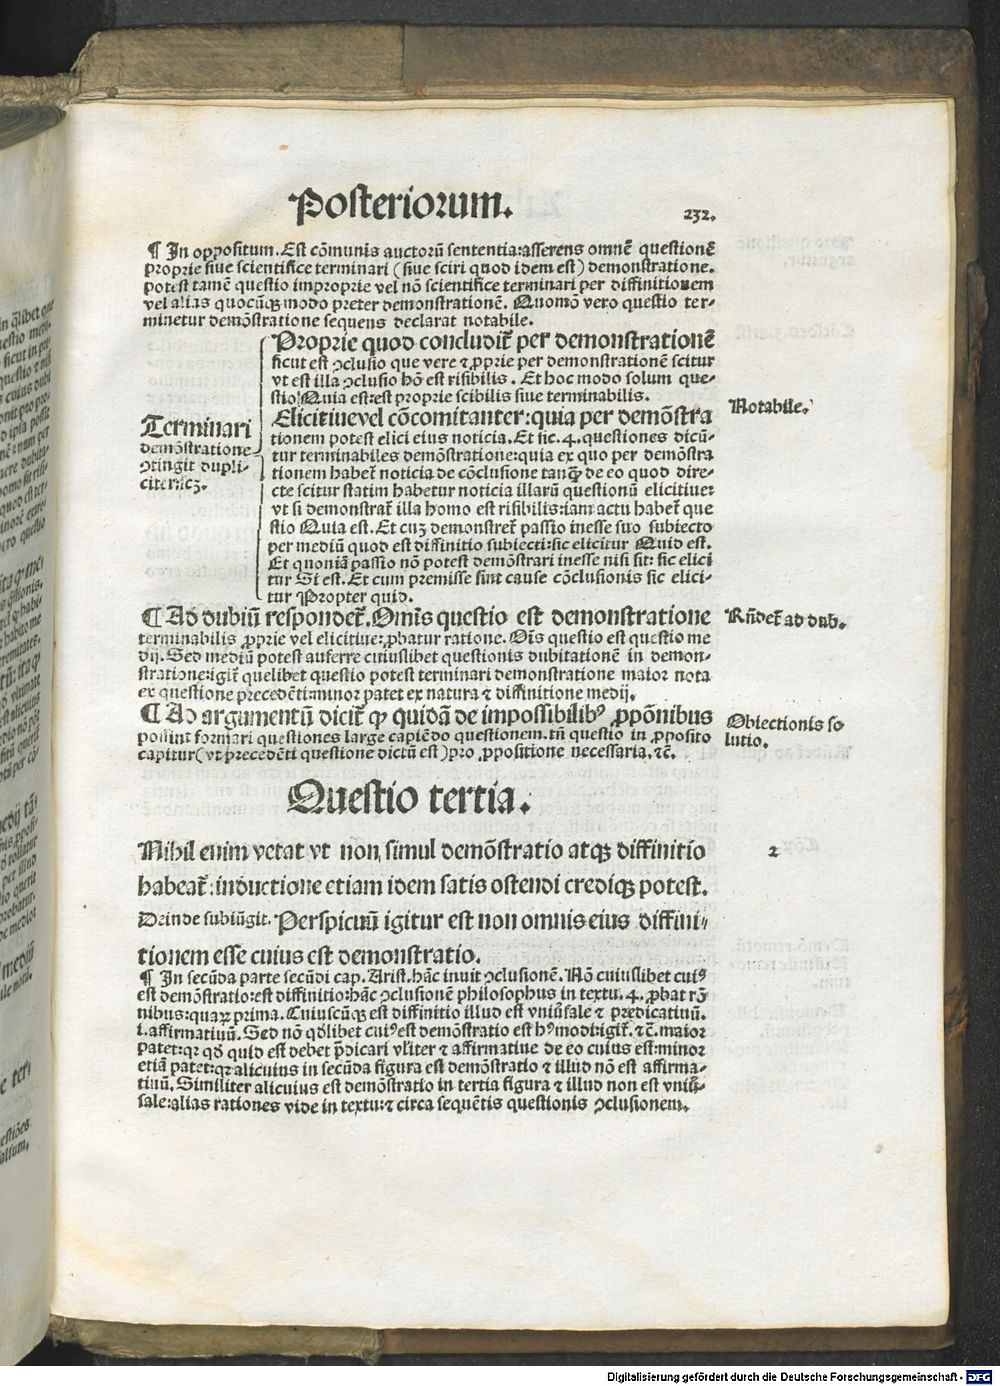 Posteriorum.
232.
¶ In oppositum. Est cõmunis auctorũ sententia: asserens omnẽ questionẽ
proprie siue scientifice terminari (siue sciri quod idem est) demonstratione.
potest tamẽ questio improprie vel nõ scientifice terminari per diffinitionem
vel alias quocũqꝫ modo preter demonstrationẽ. Quomõ vero questio ter-
minetur demõstratione sequens declarat notabile.
Terminari
demõstratione
ꝯtingit dupli-
citer scꝫ.
Proprie quod concludit᷑ per demonstrationẽ
sicut est ꝯclusio que vere ⁊ ꝓprie per demonstrationẽ scitur
vt est illa ꝯclusio hõ est risibilis. Et hoc modo solum que-
stio Quia est: est proprie scibilis siue terminabilis.
Elicitiue vel cõcomitanter: quia per demõstra
tionem potest elici eius noticia. Et sic .4. questiones dicũ-
tur terminabiles demõstratione: quia ex quo per demõstra
tionem habet᷑ noticia de cõclusione tanꝙ̃ de eo quod dire-
cte scitur statim habetur noticia illarũ questionũ elicitiue:
vt si demonstrat᷑ illa homo est risibilis: iam actu habet᷑ que
stio Quia est. Et cuꝫ demonstret᷑ passio inesse suo subiecto
per mediũ quod est diffinitio subiecti: sic elicitur Quid est.
Et quoniã passio nõ potest demõstrari inesse nisi sit: sic elici
tur Si est. Et cum premisse sint cause cõclusionis sic elici-
tur Propter quid.
Notabile.
¶ Ad dubiũ respondet᷑. Om̃is questio est demonstratione
terminabilis ꝓprie vel elicitiue: ꝓbatur ratione. Oĩs questio est questio me
dij. Sed mediũ potest auferre cuiuslibet questionis dubitationẽ in demon-
stratione: igit᷑ quelibet questio potest terminari demonstratione maior nota
ex questione precedẽti: minor patet ex natura ⁊ diffinitione medij.
Rñdet᷑ ad dub.
¶ Ad argumentũ dicit᷑ ꝙ quidã de impossibilibꝰ ꝓpõnibus
possint formari questiones large capiẽdo questionem. tñ questio in ꝓposito
capitur (vt precedẽti questione dictũ est) pro ꝓpositione necessaria. ⁊c̃.
Obiectionis so
lutio.
Questio tertia.
Nihil enim vetat vt non simul demõstratio atqꝫ diffinitio
habeat᷑: inductione etiam idem satis ostendi crediqꝫ potest.
Deinde subiũgit. Perspicuũ igitur est non omnis eius diffini-
tionem esse cuius est demonstratio.
2
¶ In secũda parte secũdi cap. Arist. hãc inuit ꝯclusionẽ. Nõ cuiuslibet cuiꝰ
est demõstratio: est diffinitio: hãc ꝯclusionẽ philosophus in textu .4. ꝓbat rõ
nibus: quaꝝ prima. Cuiuscũqꝫ est diffinitio illud est vniũsale ⁊ predicatiuũ.
i. affirmatiuũ. Sed nõ qđlibet cuiꝰ est demõstratio est hꝰmodi: igit᷑. ⁊c̃. maior
patet: qꝛ qđ quid est debet p̃dicari vl̃iter ⁊ affirmatiue de eo cuius est: minor
etiã patet: qꝛ alicuius in secũda figura est demõstratio ⁊ illud nõ est affirma-
tiuũ. Similiter alicuius est demõstratio in tertia figura ⁊ illud non est vniũ-
sale: alias rationes vide in textu: ⁊ circa sequẽtis questionis ꝯclusionem.
Digitalisierung gefördert durch die Deutsche Forschungsgemeinschaft - DFG